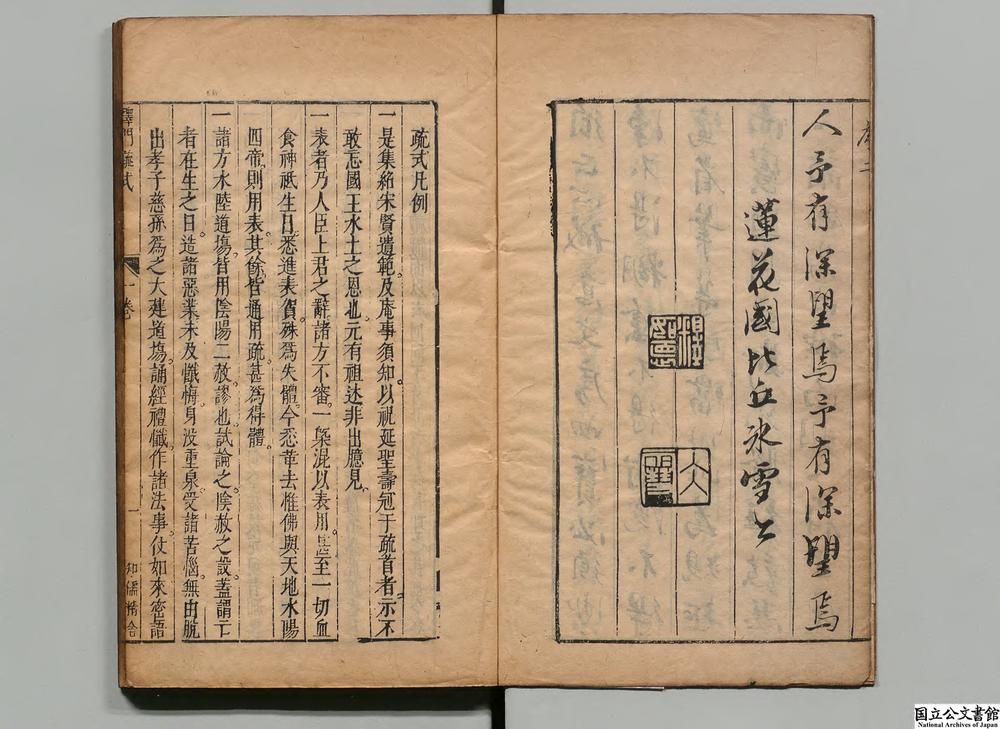 人予有深望焉予有深望焉
蓮花國比丘氷雪
疏式凡例
一是集始宋賢遺範及庵事須知以祝延聖壽冠于疏首者示不
敢忘國王水土之恩也元有祖述非出臆見
一表者乃人臣上君之辭諸方不審一槩混以表用甚至一切血
食神祗生日悉進表賀殊爲失體今悉革去惟佛與天地水陽
四帝則用表其餘皆通用疏甚爲得體
一諸方水陸道塲皆用陰陽二赦謬也試論之陰赦之設蓋謂亡
者在生之日造諸惡業未及懺悔身没重泉受諸苦惱無由脫
出孝子慈孫爲之大建道塲誦經禮懺作諸法事仗如來密語
釋門疏式
一卷
一
知儒精舍
国立公文書館
National Archives of Japan